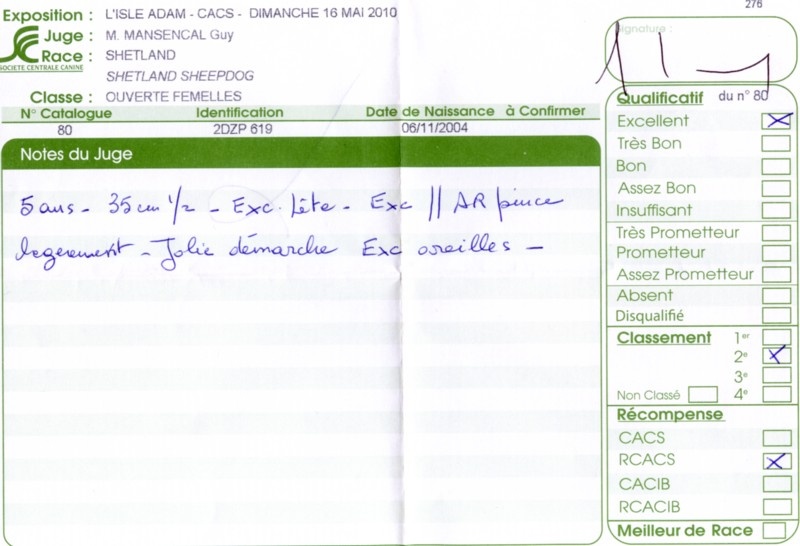 276
Exposition : L'ISLE ADAM - CACS - DIMANCHE 16 MAI 2010
Juge : M. MANSENCAL Guy
Race : SHETLAND
SOCIETE CENTRALE CANINE
SHETLAND SHEEPDOG
Classe : OUVERTE FEMELLES
N° Catalogue Identification Date de Naissance à Confirmer
80 2DZP 619 06/11/2004
Notes du Juge
5 ans - 35 cm 1/2 - Exc. tête - Exc // AR pince
legerement - Jolie démarche Exc oreilles -
Signature :
Qualificatif du n° 80
Excellent X
Très Bon
Bon
Assez Bon
Insuffisant
Très Prometteur
Prometteur
Assez Prometteur
Absent
Disqualifié
Classement 1er
2e X
3e
Non Classé 4e
Récompense
CACS
RCACS X
CACIB
RCACIB
Meilleur de Race